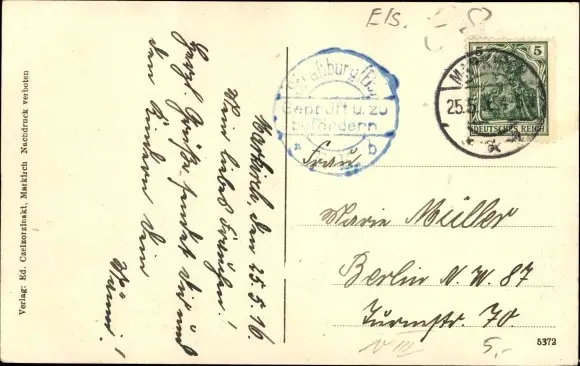 Els.
Markirch, den 25.5.16.
Mein liebes Frauchen!
Herzl. Grüße sendet Dir und
den Kindern Dein
Verlag: Ed. Czeizorzinski, Markirch Nachdruck verboten
Geprüft u. zu
befördern
b
5 5
DEUTSCHES REICH
25.5
Frau
Marie Müller
Berlin N. W. 87
Turmstr. 70
5,-
5372